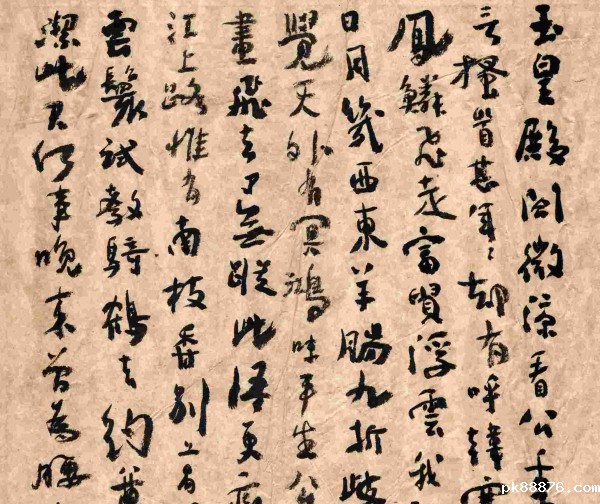 玉皇殿閣微涼看公重
言搔首甚年年却有呼韓
鳳鱗飛走富貴浮雲我
日月几西東羊腸九折歧
覺天外有冥鴻味平生公
畫飛去了無蹤此更
江上路惟有南枝香別上有
雲鬟試教騎鶴去約尊
潔此君何事晚來曾為腰
pk88876.com